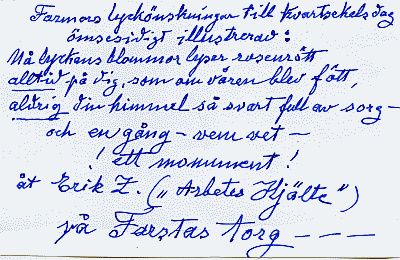 Farmors lyckönskningar till kvartsekelsdag
ömsesidigt illustrerad:
Må lyckens blommor lyser rosenrött
alltid på dig, som om våren blev fött,
aldrig din himmel så svart full av sorg –
och en gång – vem vet –
! ett monument !
åt Erik Z. („Arbetes Hjälte")
på Farstas torg – – –